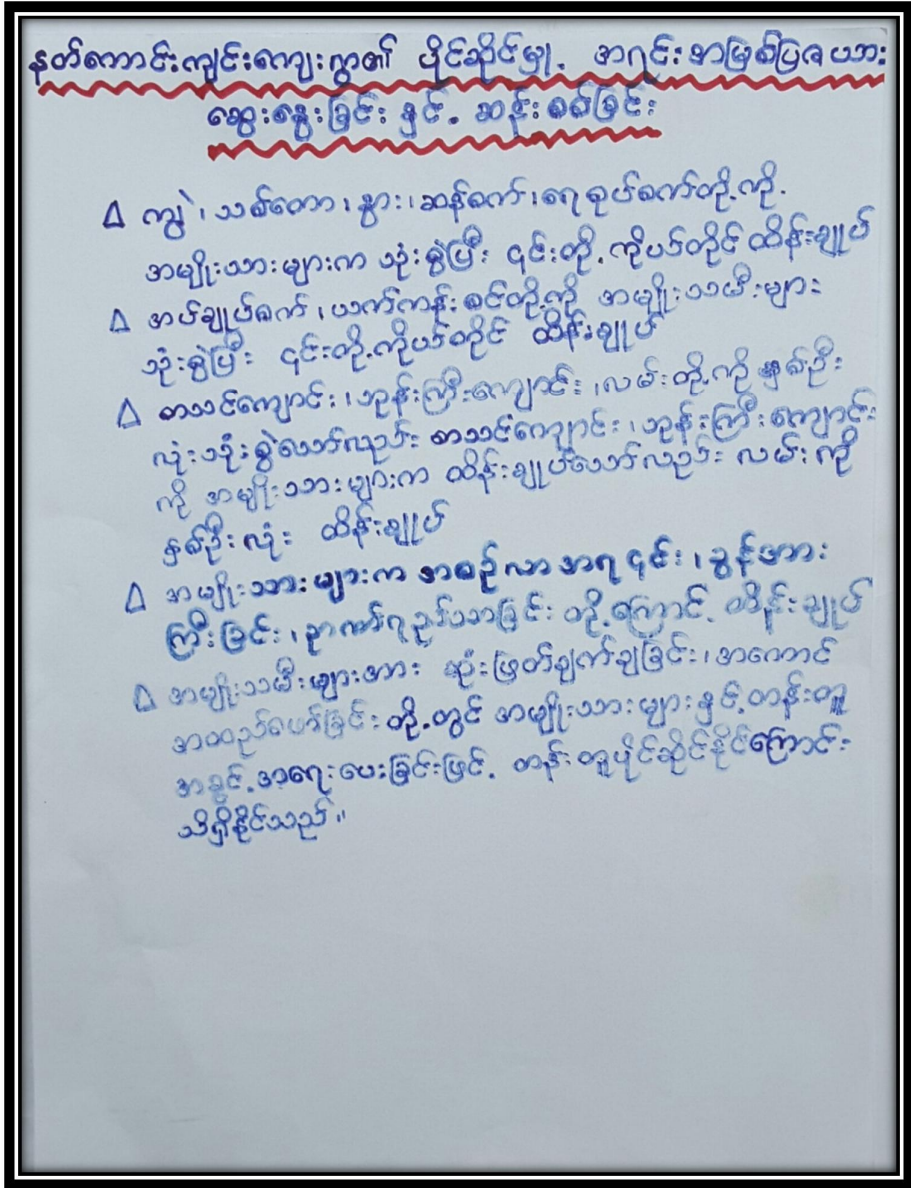 နတ်ကောင်းကျင်းကျေးရွာ၏ ပိုင်ဆိုင်မှု့ အရင်းအမြစ်ပြဇယား
ဆွေးနွေးခြင်း နှင့် ဆန်းစစ်ခြင်း
Δ ကျွဲ၊ သစ်တော၊ နွား၊ ဆန်စက်၊ ရေစုပ်စက်တို့ကို
အမျိုးသားများက သုံးစွဲပြီး ၎င်းတို့ကိုပင်တိုင် ထိန်းချုပ်
Δ အပ်ချုပ်စက်၊ ယက်ကန်းစင်တို့ကို အမျိုးသမီးများ
သုံးစွဲပြီး ၎င်းတို့ကိုပင်တိုင် ထိန်းချုပ်
Δ စာသင်ကျောင်း၊ ဘုန်းကြီးကျောင်း၊ လမ်းတို့ကို နှစ်ဦး
လုံးသုံးစွဲသော်လည်း စာသင်ကျောင်း၊ ဘုန်းကြီးကျောင်း
ကို အမျိုးသားများက ထိန်းချုပ်သော်လည်း လမ်းကို
နှစ်ဦးလုံး ထိန်းချုပ်
Δ အမျိုးသားများက အစဉ်လာအရ ၎င်း၊ ခွန်အား
ကြီးခြင်း၊ ဉာဏ်ရည်သာခြင်း တို့ကြောင့် ထိန်းချုပ်
Δ အမျိုးသမီးများအား ဆုံးဖြတ်ချက်ချခြင်း၊ အကောင်
အထည်ဖော်ခြင်း တို့တွင် အမျိုးသားများနှင့် တန်းတူ
အခွင့်အရေးပေးခြင်းဖြင့် တန်းတူပိုင်ဆိုင်နိုင်ကြောင်း
သိရှိနိုင်သည်။